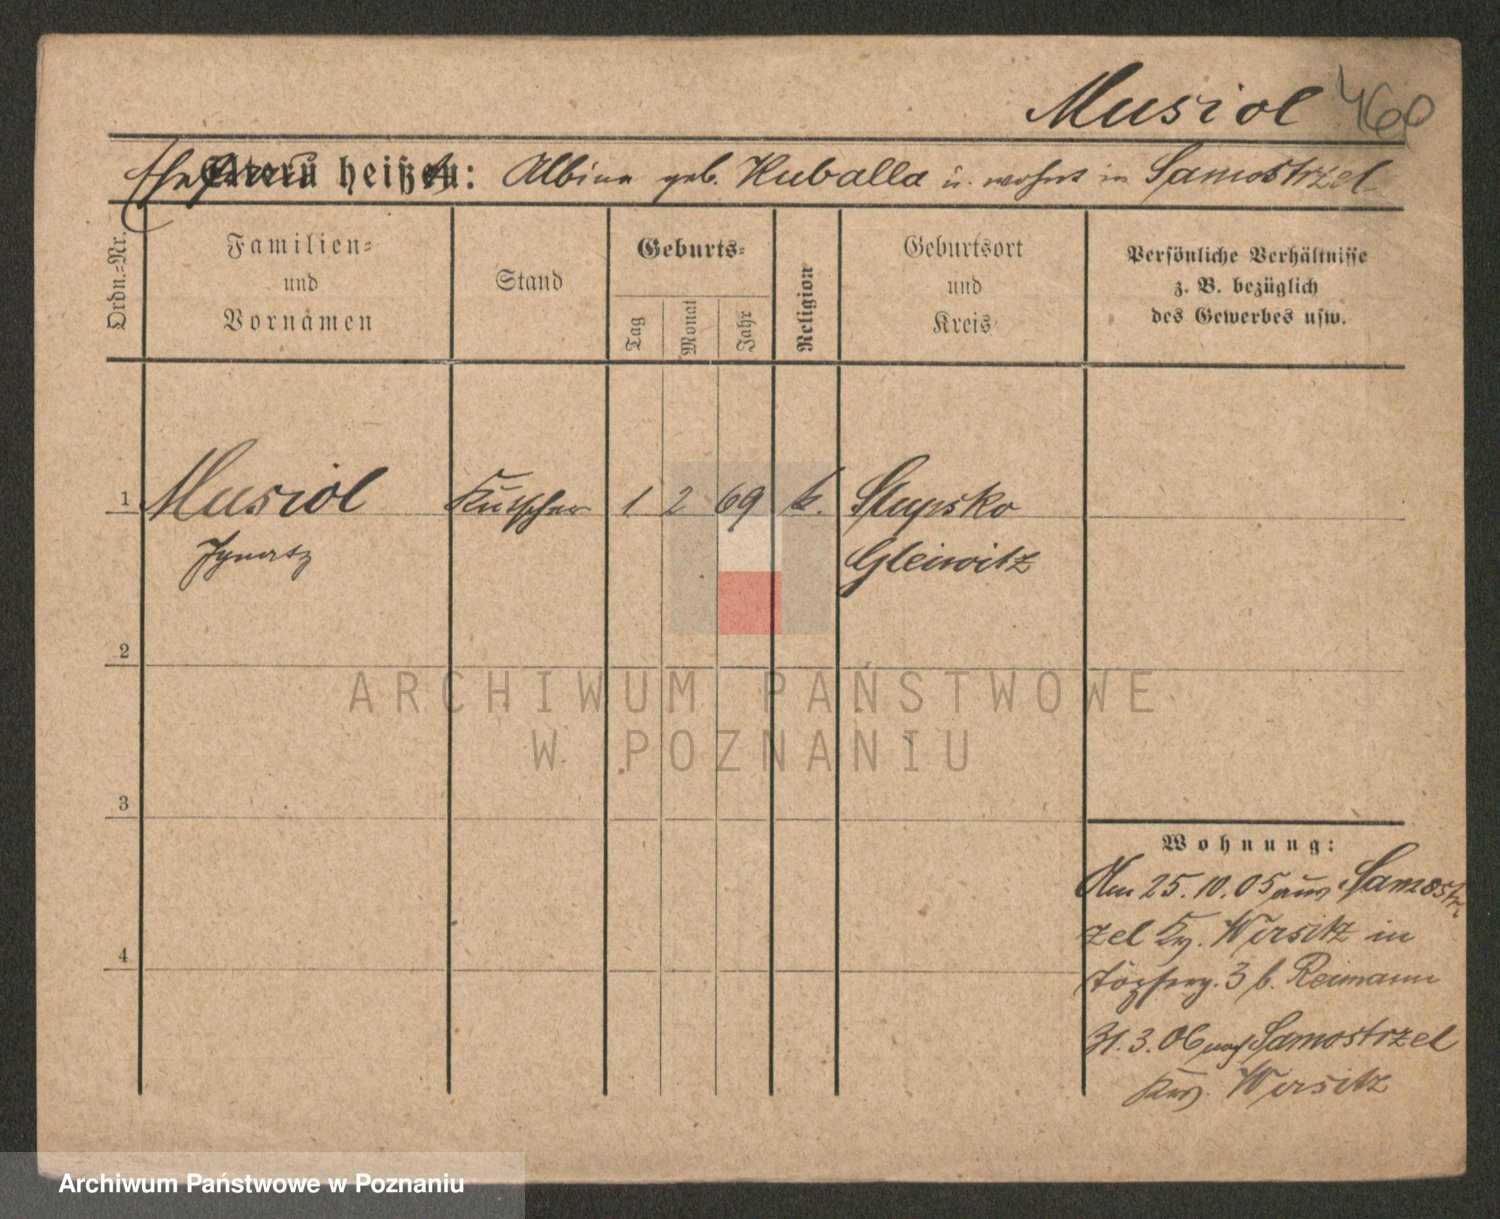 Musiol 460
Ehefrau heißt: Albina geb. Kuballa u. wohnt in Samostrzel
Ordn.-Nr.
Familien-
und
Vornamen
Stand
Geburts-
Tag
Monat
Jahr
Religion
Geburtsort
und
Kreis
Persönliche Verhältnisse
z. B. bezüglich
des Gewerbes usw.
1 Musiol Kutscher 1 2 69 k. Slupsko
Ignatz Gleiwitz
2
3
4
Wohnung:
Am 25.10.05 aus Samost-
zel Kr. Wirsitz in
Töpferg. 3 b. Reimann
31.3.06 nach Samostrzel
Krs. Wirsitz
ARCHIWUM PAŃSTWOWE
W POZNANIU
Archiwum Państwowe w Poznaniu